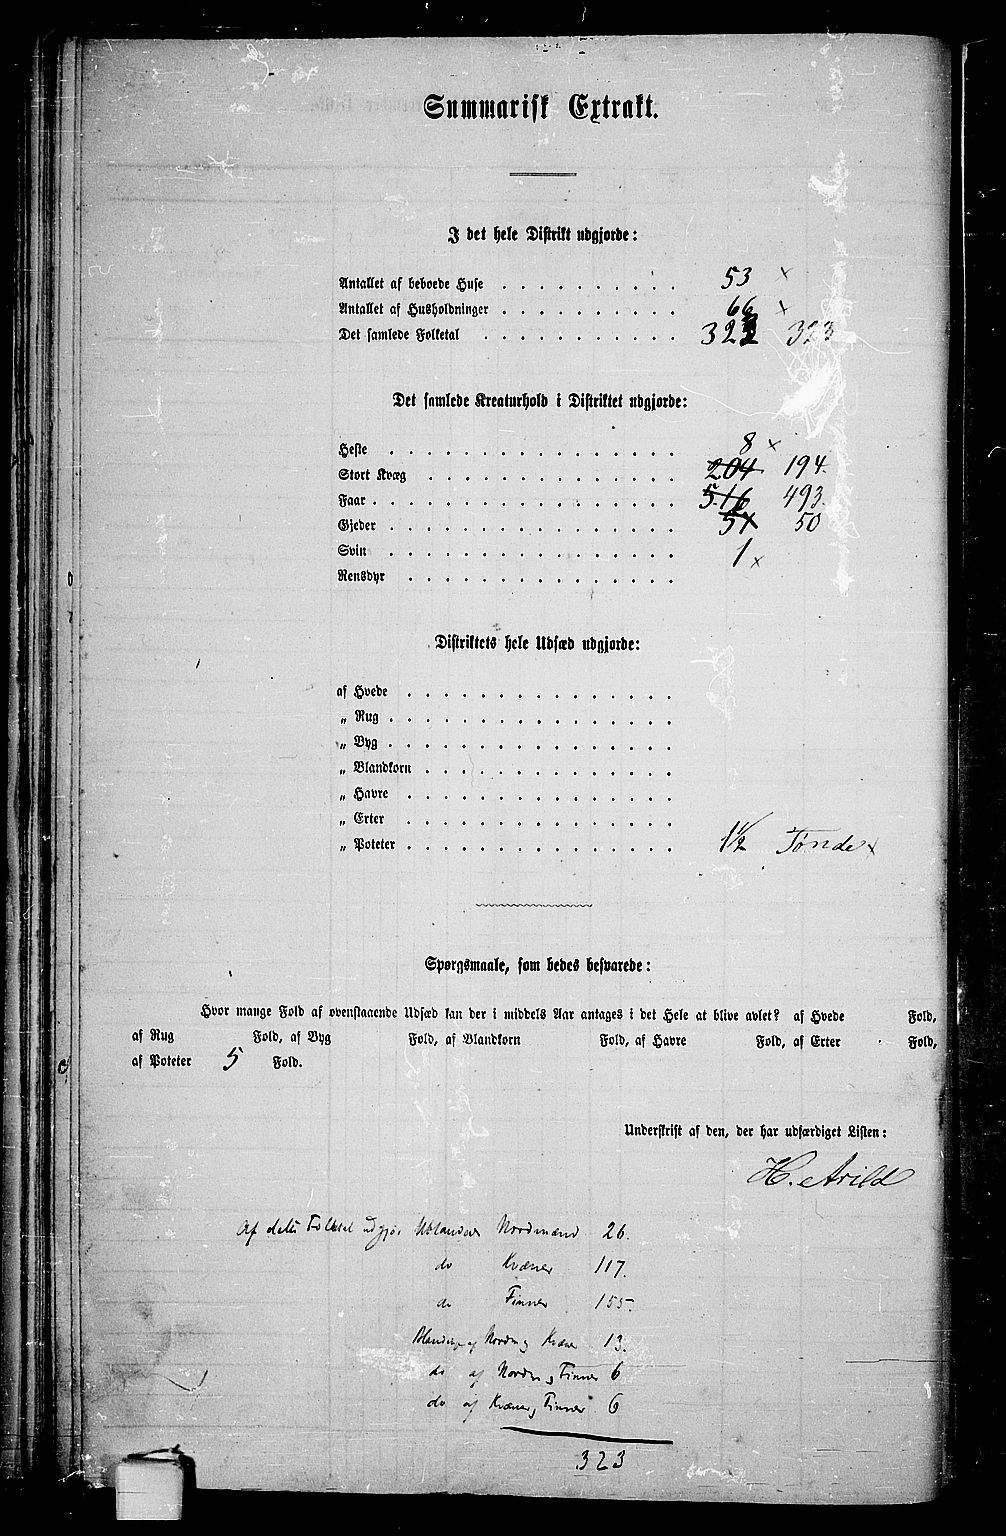 Summarisk Extrakt.
I det hele Distrikt udgjorde:
Antallet af beboede Huse . . . . . . . . . . 53 ×
Antallet af Husholdninger . . . . . . . . . . 66 ×
Det samlede Folketal . . . . . . . . . . . 323 323
Det samlede Kreaturhold i Distriktet udgjorde:
Heste . . . . . . . . . . . . . . . . 8 ×
Stort Kvæg . . . . . . . . . . . . . . 204 194.
Faar . . . . . . . . . . . . . . . . 516 493.
Gjeder . . . . . . . . . . . . . . . . 51 50
Svin . . . . . . . . . . . . . . . . 1 ×
Rensdyr . . . . . . . . . . . . . . .
Distriktets hele Udsæd udgjorde:
af Hvede . . . . . . . . . . . . . . .
„ Rug . . . . . . . . . . . . . . . .
„ Byg . . . . . . . . . . . . . . . .
„ Blandkorn . . . . . . . . . . . . . .
„ Havre . . . . . . . . . . . . . . .
„ Erter . . . . . . . . . . . . . . .
„ Poteter . . . . . . . . . . . . . . . 1½ Tønde ×
Spørgsmaale, som bedes besvarede:
Hvor mange Fold af ovenstaaende Udsæd kan der i middels Aar antages i det Hele at blive avlet? af Hvede Fold,
af Rug Fold, af Byg Fold, af Blandkorn Fold, af Havre Fold, af Erter Fold,
af Poteter 5 Fold.
Underskrift af den, der har udfærdiget Listen:
H. Arild
Af dette Folketal udgjør Ublandede Nordmænd 26.
do Kvæner 117.
do Finner 155.
Blanding af Nordm og Kvæner 13.
do af Nordm og Finner 6
do af Kvæner og Finner 6
323